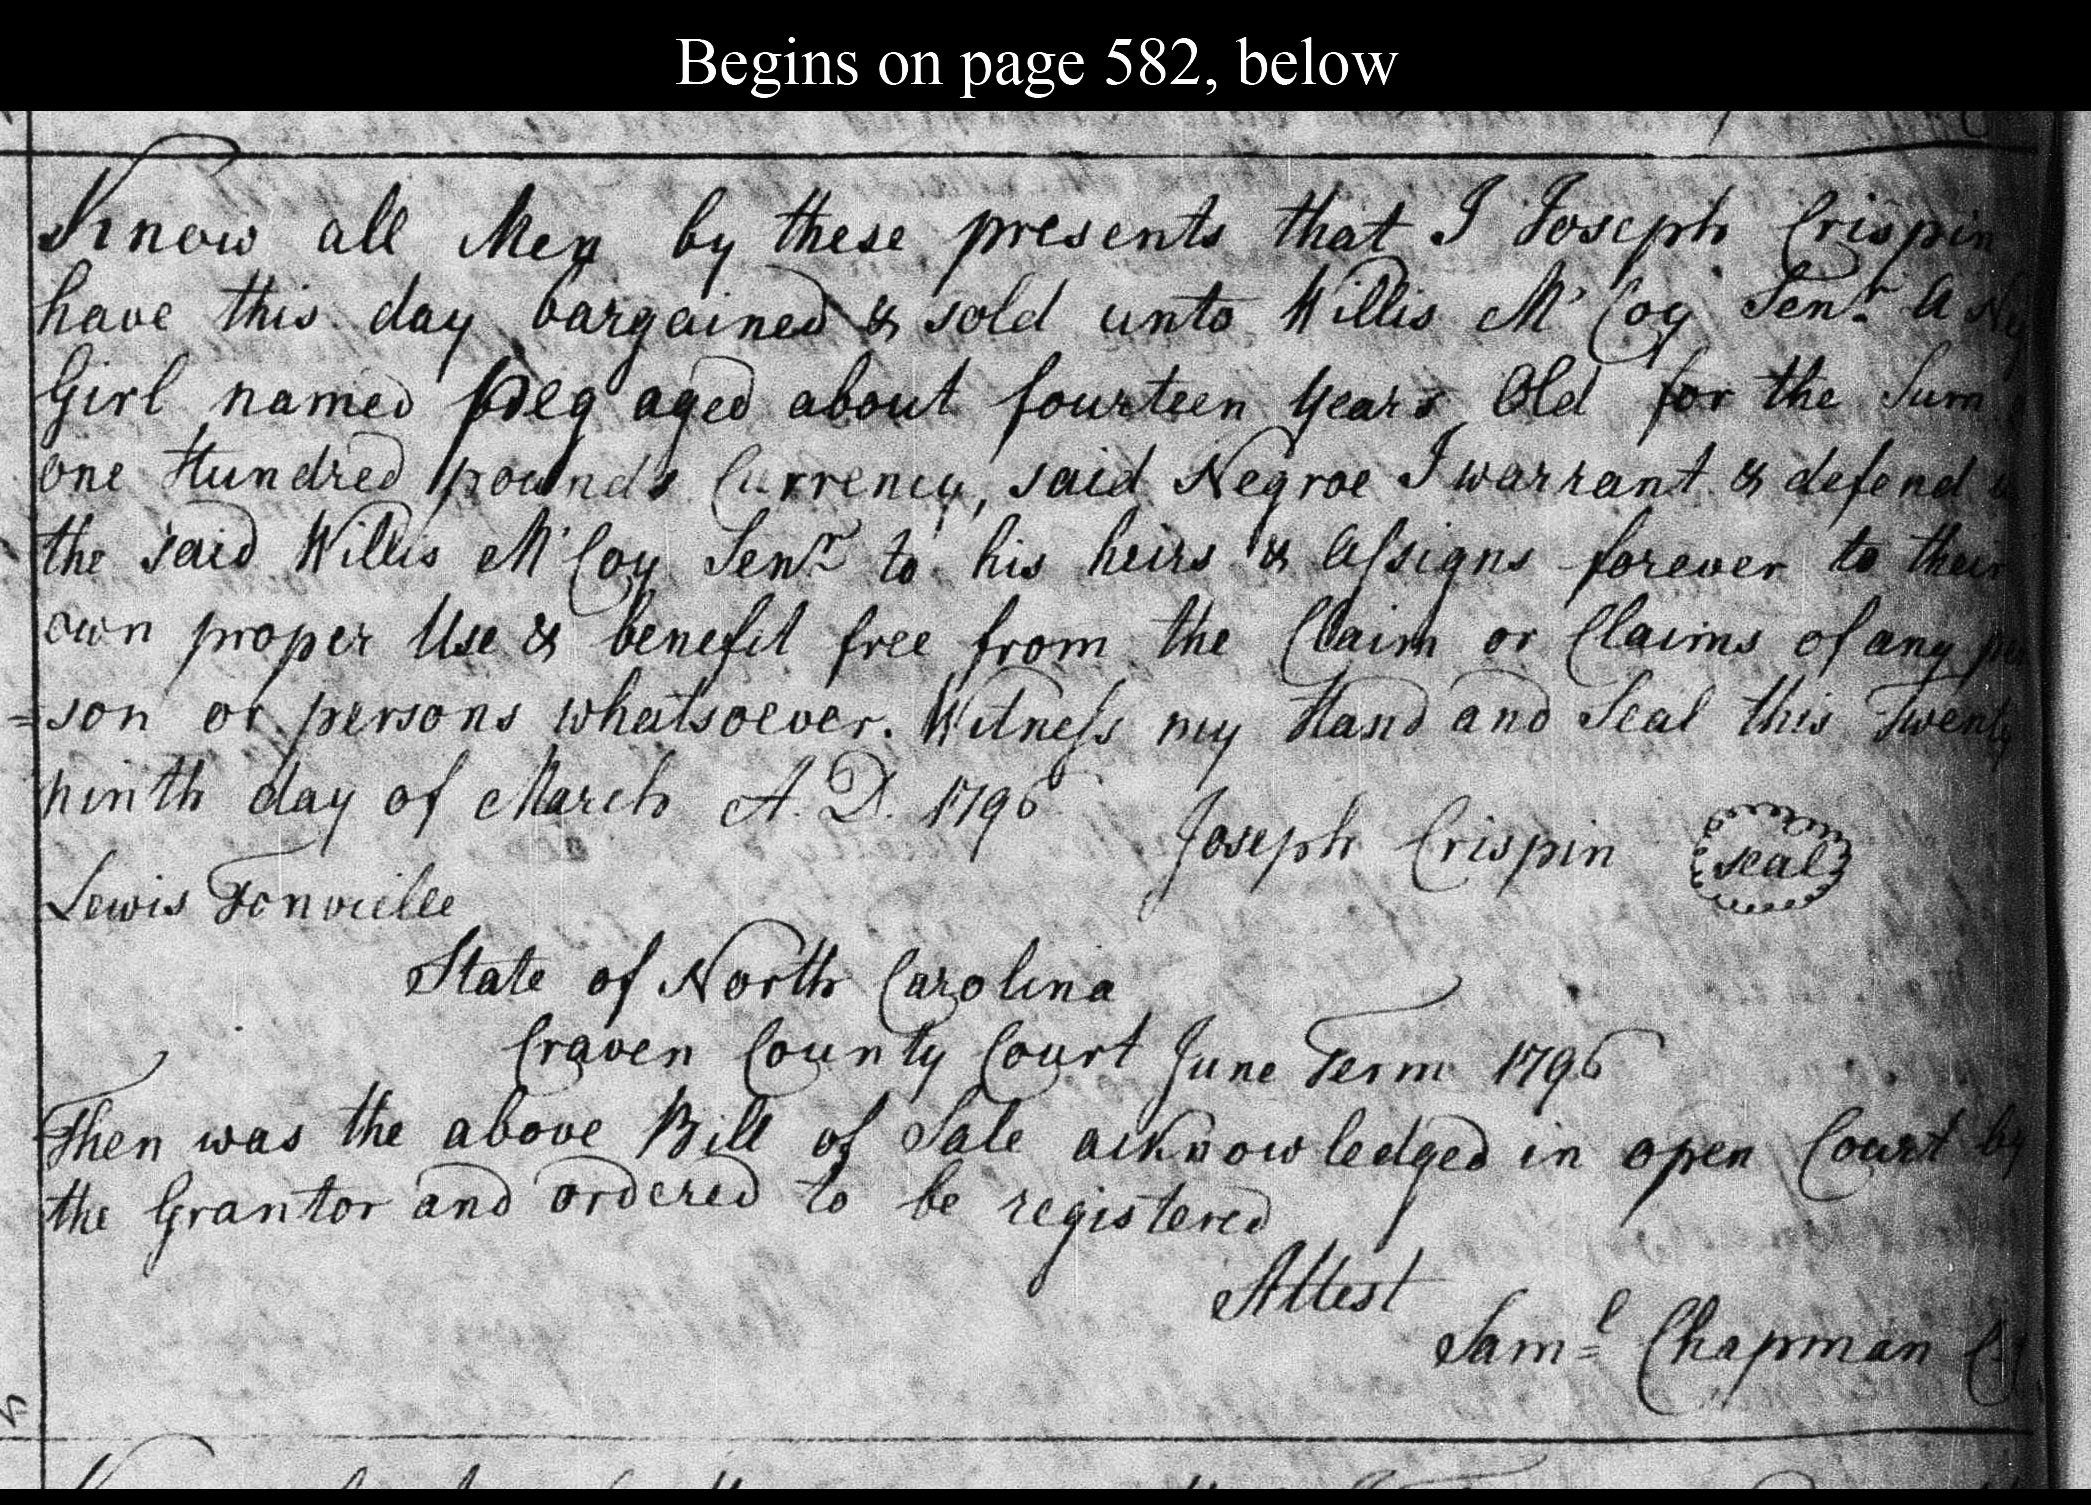 Begins on page 582, below
Know all Men by these presents that I Joseph Crispin
have this day bargained & sold unto Willis Mc Coy Senr. A
Girl named Peg aged about fourteen Years Old for the Sum
one Hundred pounds Currency, said Negroe I warrant & defend
the said Willis Mc Coy Senr to his heirs & Assigns forever to their
own proper Use & benefit free from the Claim or Claims of any per
=son or persons whatsoever. Witness my Hand and Seal this Twenty
ninth day of March A. D. 1796
Joseph Crispin seal
Lewis Fonvielle
State of North Carolina
Craven County Court June Term 1796
Then was the above Bill of Sale acknowledged in open Court by
the Grantor and ordered to be registered
Attest
Saml Chapman